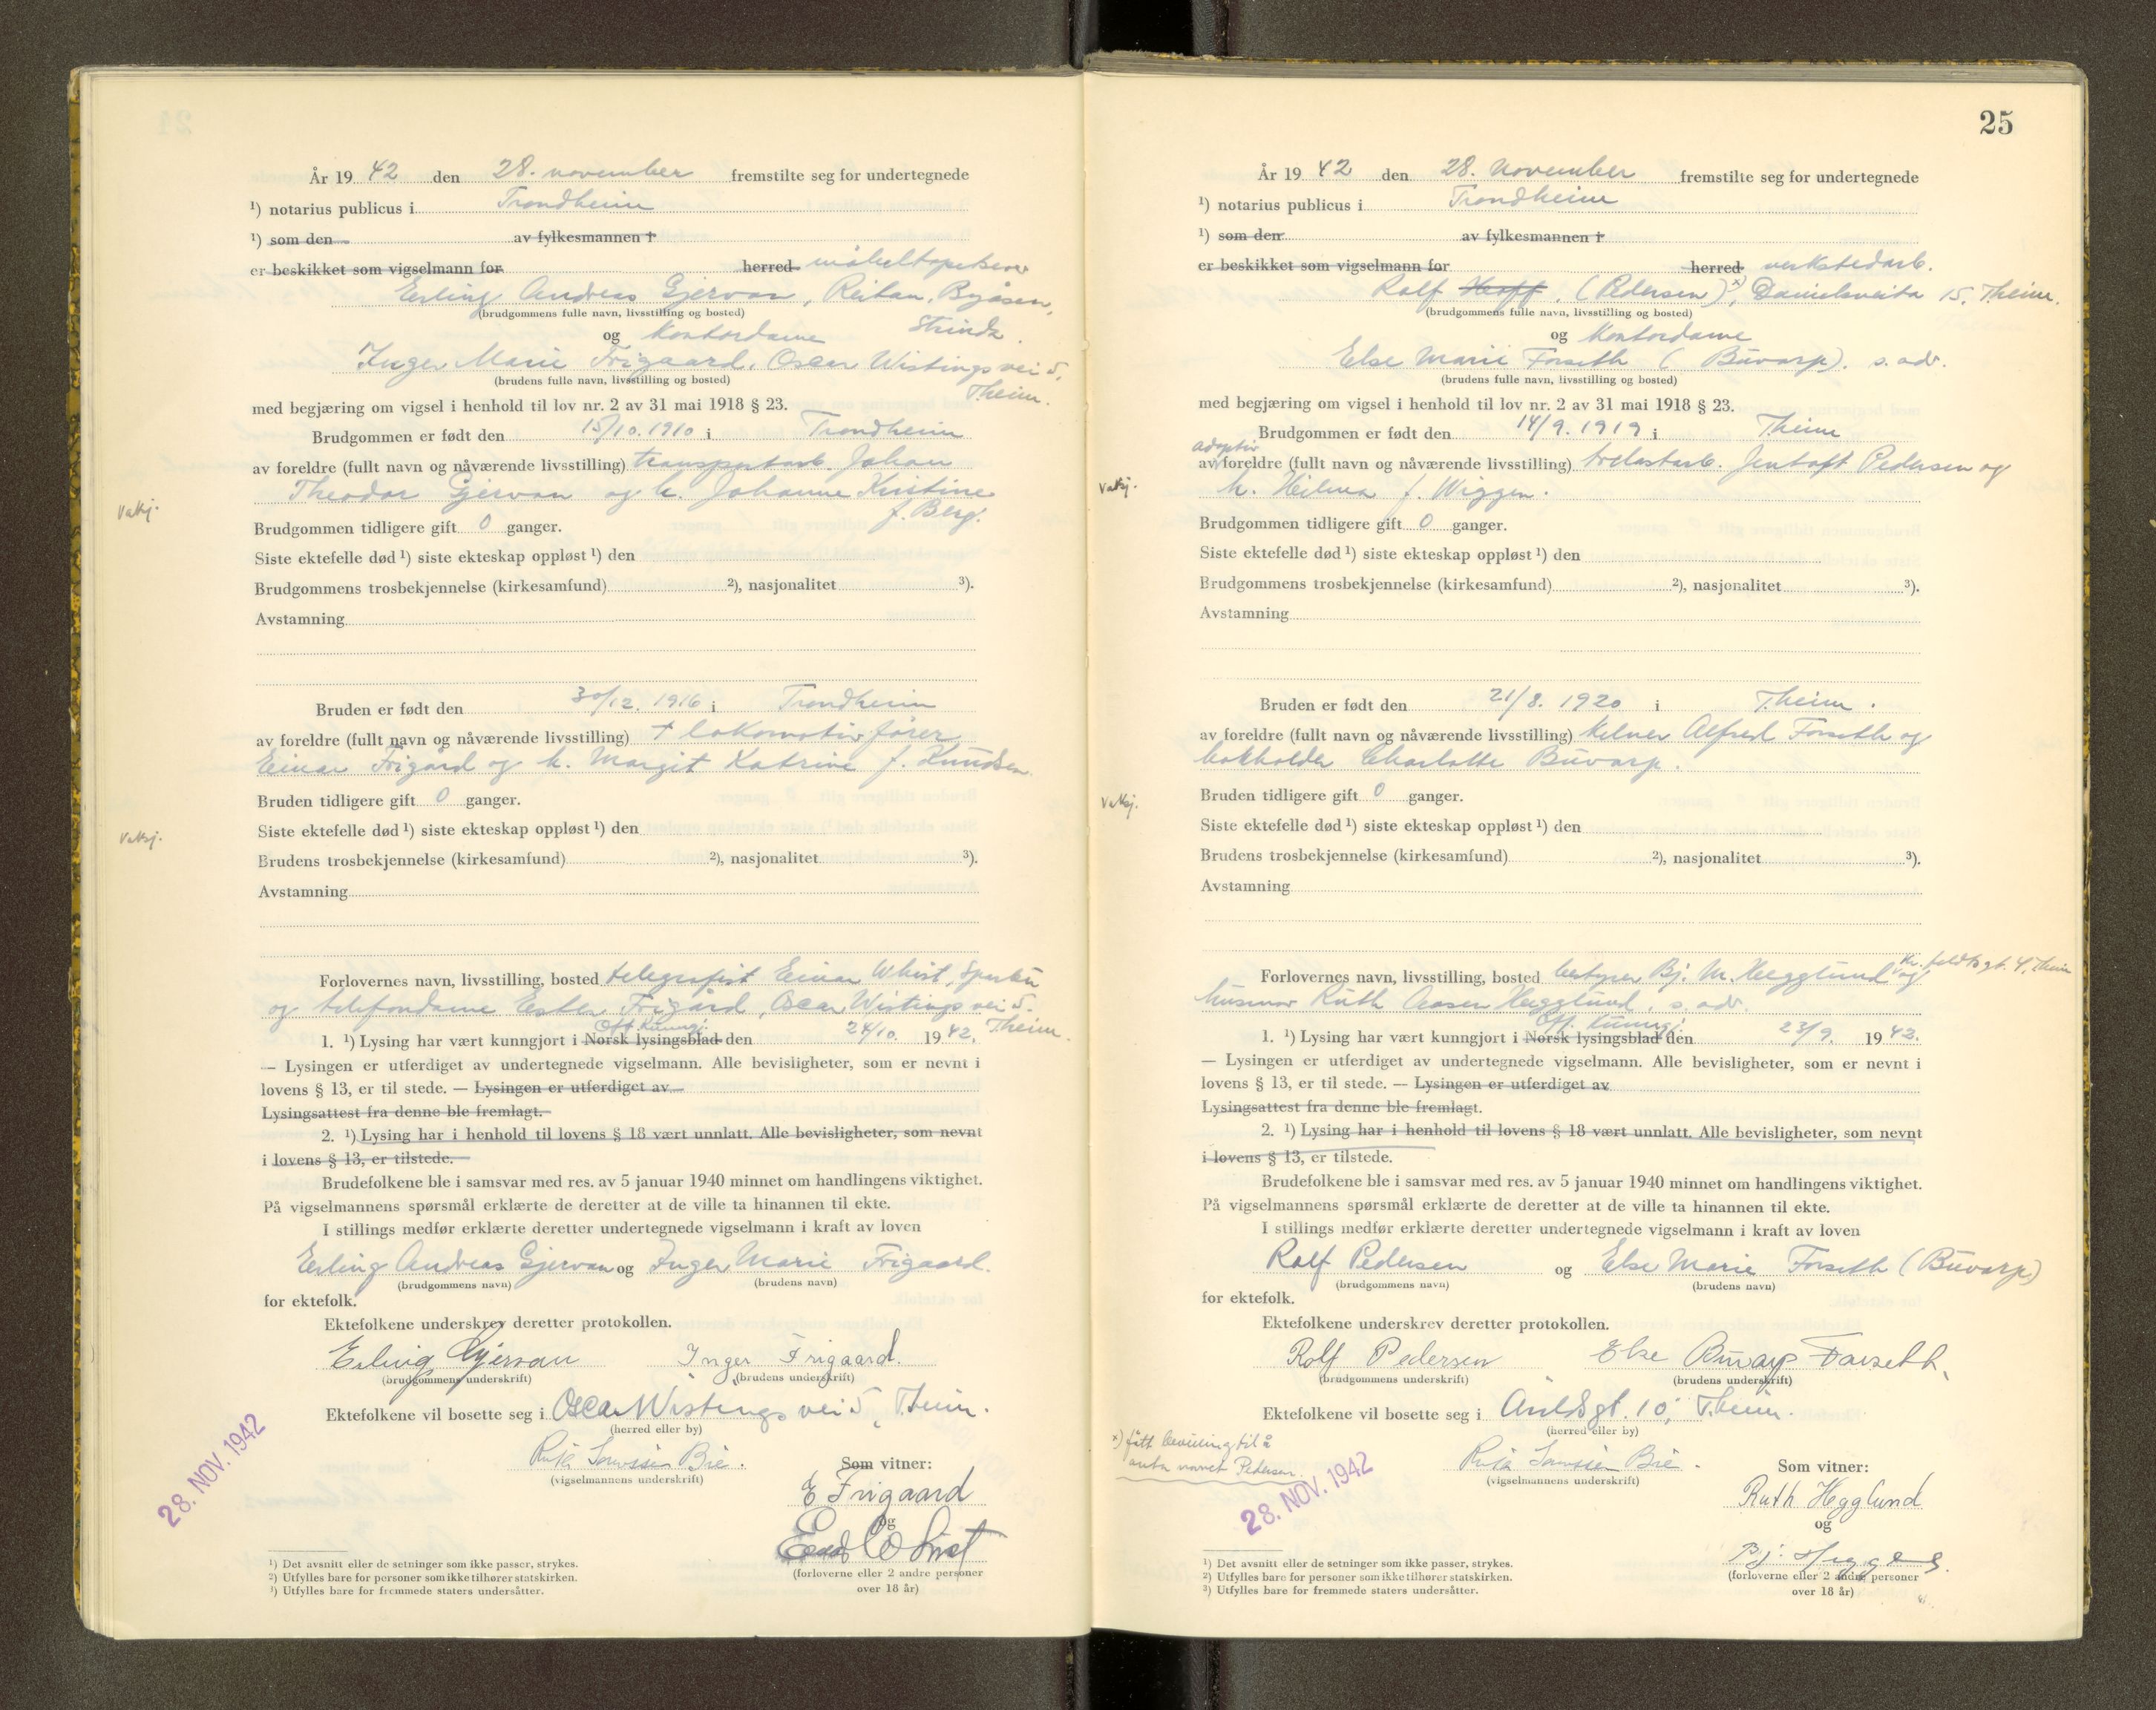 År 1942 den 28. november fremstilte seg for undertegnede
¹) notarius publicus i Trondheim
¹) som den av fylkesmannen i
er beskikket som vigselmann for herred møbeltapetserer
Erling Andreas Gjervan, Reitan, Byåsen,
(brudgommens fulle navn, livsstilling og bosted) Strinda.
og Kontordame
Inger Marie Frigaard, Oscar Wistings vei 5,
(brudens fulle navn, livsstilling og bosted) T.heim.
med begjæring om vigsel i henhold til lov nr. 2 av 31 mai 1918 § 23.
Brudgommen er født den 15/10. 1910 i Trondheim
av foreldre (fullt navn og nåværende livsstilling) transportarb. Johan
Theodor Gjervan og h. Johanne Kristine
f. Berg.
vaksj.
Brudgommen tidligere gift 0 ganger.
Siste ektefelle død ¹) siste ekteskap oppløst ¹) den
Brudgommens trosbekjennelse (kirkesamfund) ²), nasjonalitet ³).
Avstamning
Bruden er født den 30/12. 1916 i Trondheim
av foreldre (fullt navn og nåværende livsstilling) † lokomotivfører
Einar Frigård og h. Margit Katrine f. Knudsen.
Bruden tidligere gift 0 ganger.
Siste ektefelle død ¹) siste ekteskap oppløst ¹) den
vaksj.
Brudens trosbekjennelse (kirkesamfund) ²), nasjonalitet ³).
Avstamning
Forlovernes navn, livsstilling, bosted telegrafist Einar Whist,
og telefondame Ester Frigård, Oscar Wistings vei 5.
Off. kunngj. T.heim.
1. ¹) Lysing har vært kunngjort i Norsk lysingsblad den 24/10. 1942.
— Lysingen er utferdiget av undertegnede vigselmann. Alle bevisligheter, som er nevnt i
lovens § 13, er til stede. — Lysingen er utferdiget av
Lysingsattest fra denne ble fremlagt.
2. ¹) Lysing har i henhold til lovens § 18 vært unnlatt. Alle bevisligheter, som nevnt
i lovens § 13, er tilstede.
Brudefolkene ble i samsvar med res. av 5 januar 1940 minnet om handlingens viktighet.
På vigselmannens spørsmål erklærte de deretter at de ville ta hinannen til ekte.
I stillings medfør erklærte deretter undertegnede vigselmann i kraft av loven
Erling Andreas Gjervan og Inger Marie Frigaard.
(brudgommens navn) (brudens navn)
for ektefolk.
Ektefolkene underskrev deretter protokollen.
Erling Gjervan Inger Frigaard.
(brudgommens underskrift) (brudens underskrift)
Ektefolkene vil bosette seg i Oscar Wistings vei 5, T.heim.
(herred eller by)
28. NOV. 1942
(vigselmannens underskrift) Som vitner:
E Frigaard
og
(forloverne eller 2 andre personer
over 18 år)
¹) Det avsnitt eller de setninger som ikke passer, strykes.
²) Utfylles bare for personer som ikke tilhører statskirken.
³) Utfylles bare for fremmede staters undersåtter.
25
År 1942 den 28. November fremstilte seg for undertegnede
¹) notarius publicus i Trondheim
¹) som den av fylkesmannen i
er beskikket som vigselmann for herred verkstedarb.
Rolf Hoff, (Pedersen) x), Danielsveita 15, T.heim.
(brudgommens fulle navn, livsstilling og bosted)
og Kontordame
Else Marie Forseth (Buvarp). s. adr.
(brudens fulle navn, livsstilling og bosted)
med begjæring om vigsel i henhold til lov nr. 2 av 31 mai 1918 § 23.
Brudgommen er født den 14/9. 1919 i T.heim
adoptiv
av foreldre (fullt navn og nåværende livsstilling) trelastarb. Jentoft Pedersen og
vaksj.
h. Hilma f. Wiggen.
Brudgommen tidligere gift 0 ganger.
Siste ektefelle død ¹) siste ekteskap oppløst ¹) den
Brudgommens trosbekjennelse (kirkesamfund) ²), nasjonalitet ³).
Avstamning
Bruden er født den 21/8. 1920 i T.heim.
av foreldre (fullt navn og nåværende livsstilling) kelner Alfred Forseth og
bokholder Charlotte Buvarp.
vaksj.
Bruden tidligere gift 0 ganger.
Siste ektefelle død ¹) siste ekteskap oppløst ¹) den
Brudens trosbekjennelse (kirkesamfund) ²), nasjonalitet ³).
Avstamning
Forlovernes navn, livsstilling, bosted bestyrer Bj. M. Hegglund og
husmor Ruth Aasen Hegglund, s. adr.
Off. kunngj.
1. ¹) Lysing har vært kunngjort i Norsk lysingsblad den 23/9. 1942.
— Lysingen er utferdiget av undertegnede vigselmann. Alle bevisligheter, som er nevnt i
lovens § 13, er til stede. — Lysingen er utferdiget av
Lysingsattest fra denne ble fremlagt.
2. ¹) Lysing har i henhold til lovens § 18 vært unnlatt. Alle bevisligheter, som nevnt
i lovens § 13, er tilstede.
Brudefolkene ble i samsvar med res. av 5 januar 1940 minnet om handlingens viktighet.
På vigselmannens spørsmål erklærte de deretter at de ville ta hinannen til ekte.
I stillings medfør erklærte deretter undertegnede vigselmann i kraft av loven
Rolf Pedersen og Else Marie Forseth (Buvarp)
(brudgommens navn) (brudens navn)
for ektefolk.
Ektefolkene underskrev deretter protokollen.
Rolf Pedersen Else Buvarp Forseth,
(brudgommens underskrift) (brudens underskrift)
Ektefolkene vil bosette seg i 10, T.heim.
(herred eller by)
x) fått bevilling til å
anta navnet Pedersen.
28. NOV. 1942
(vigselmannens underskrift) Som vitner:
Ruth Hegglund
og
(forloverne eller 2 andre personer
over 18 år)
¹) Det avsnitt eller de setninger som ikke passer, strykes.
²) Utfylles bare for personer som ikke tilhører statskirken.
³) Utfylles bare for fremmede staters undersåtter.